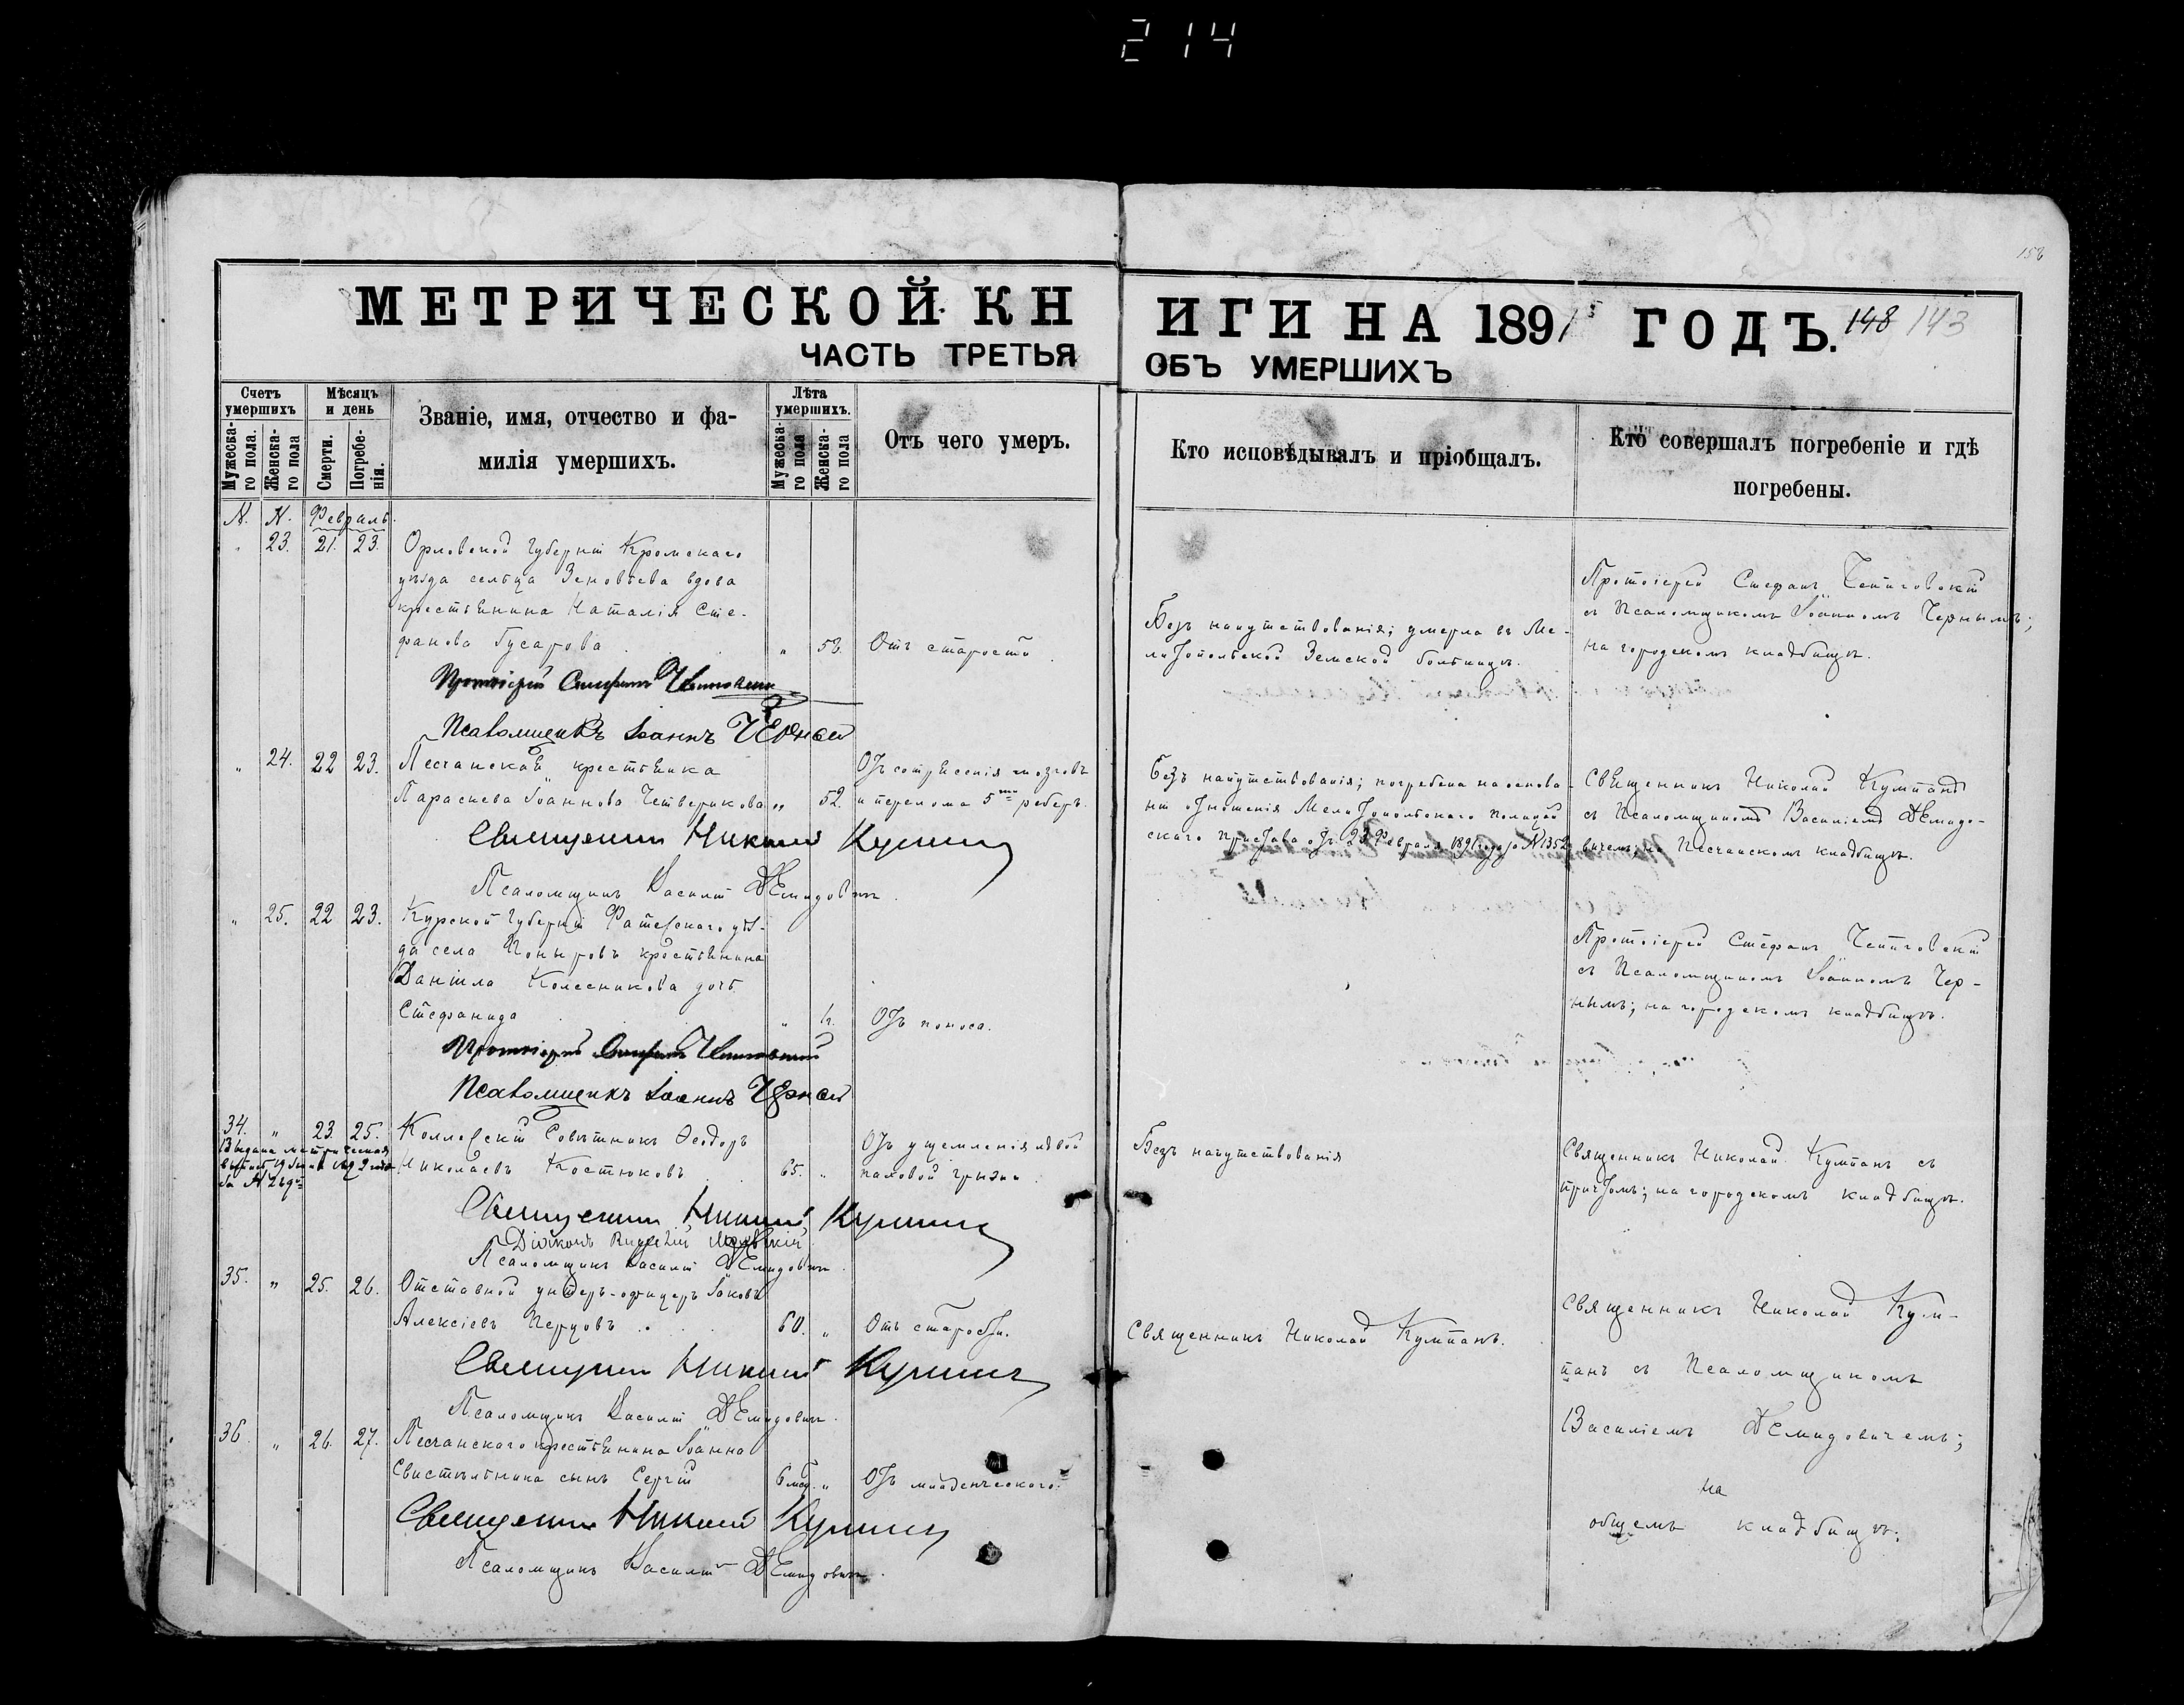 214
158
МЕТРИЧЕСКОЙ КНИГИ НА 1891 ГОДЪ.
148 143
ЧАСТЬ ТРЕТЬЯ ОБЪ УМЕРШИХЪ
Счетъ умершихъ
Мужеска-го пола.
Женска-го пола
Мѣсяцъ и день
Смерти.
Погребе-нія.
Званіе, имя, отчество и фа-
милія умершихъ.
Лѣта умершихъ.
Мужеска-го пола
Женска-го пола
Отъ чего умеръ.
Кто исповѣдывалъ и пріобщалъ.
Кто совершалъ погребеніе и гдѣ
погребены.
N. N. Февраль.
" 23. 21. 23. Орловской губерніи Кромскаго
уѣзда сельца Зеновьева вдова
крестьянина Наталія Сте-
фанова Гусарова " 53. Отъ старости.
Безъ напутствованія; умерла въ Ме-
литопольской Земской больницѣ.
Протоіерей Стефанъ
съ Псаломщикомъ Іоанномъ Чернымъ;
на городскомъ кладбищѣ.
Протоіерей Стефанъ
Псаломщикъ Іоаннъ Черный
" 24. 22 23. Песчанская крестьянка
Параскева Іоаннова Четверикова " 52.
Отъ сотрясенія мозговъ
и перелома 5ти реберъ.
Безъ напутствованія; погребена на основа-
ніи отношенія Мелитопольскаго Полицей-
скаго Пристава отъ 22 Февраля 1891 года N 1352
Священникъ Николай Кумпанъ
съ Псаломщикомъ Василіемъ Демидо-
вичемъ; на Песчанскомъ кладбищѣ.
Священникъ Николай Кумпанъ
Псаломщикъ Василій Демидовичъ.
" 25. 22 23. Курской губерніи Фатежскаго уѣз-
да села Поныровъ крестьянина
Даніила Колесникова дочь
Стефанида " Отъ поноса.
Протоіерей Стефанъ
съ Псаломщикомъ Іоанномъ Чер-
нымъ; на городскомъ кладбищѣ.
Протоіерей Стефанъ
Псаломщикъ Іоаннъ Черный
34. " 23. 25. Коллежскій Совѣтникъ Ѳеодоръ
Николаевъ Костюковъ 65. "
Отъ ущемленія лѣвой
паховой грыжи.
Выдана метрическая
за N
Безъ напутствованія
Священникъ Николай Кумпанъ съ
причтомъ; на городскомъ кладбищѣ.
Священникъ Николай Кумпанъ
Діаконъ
Псаломщикъ Василій Демидовичъ.
35. " 25. 26. Отставной унтеръ-офицеръ Іаковъ
Алексіевъ Перцовъ 60. " Отъ старости.
Священникъ Николай Кумпанъ.
Священникъ Николай Кум-
панъ съ Псаломщикомъ
Василіемъ Демидовичемъ;
на
общемъ кладбищѣ.
Священникъ Николай Кумпанъ
Псаломщикъ Василій Демидовичъ.
36. " 26. 27. Песчанскаго крестьянина Іоанна
Свистѣльника сынъ Сергій 6 мѣс. " Отъ младенческаго.
Священникъ Николай Кумпанъ
Псаломщикъ Василій Демидовичъ.